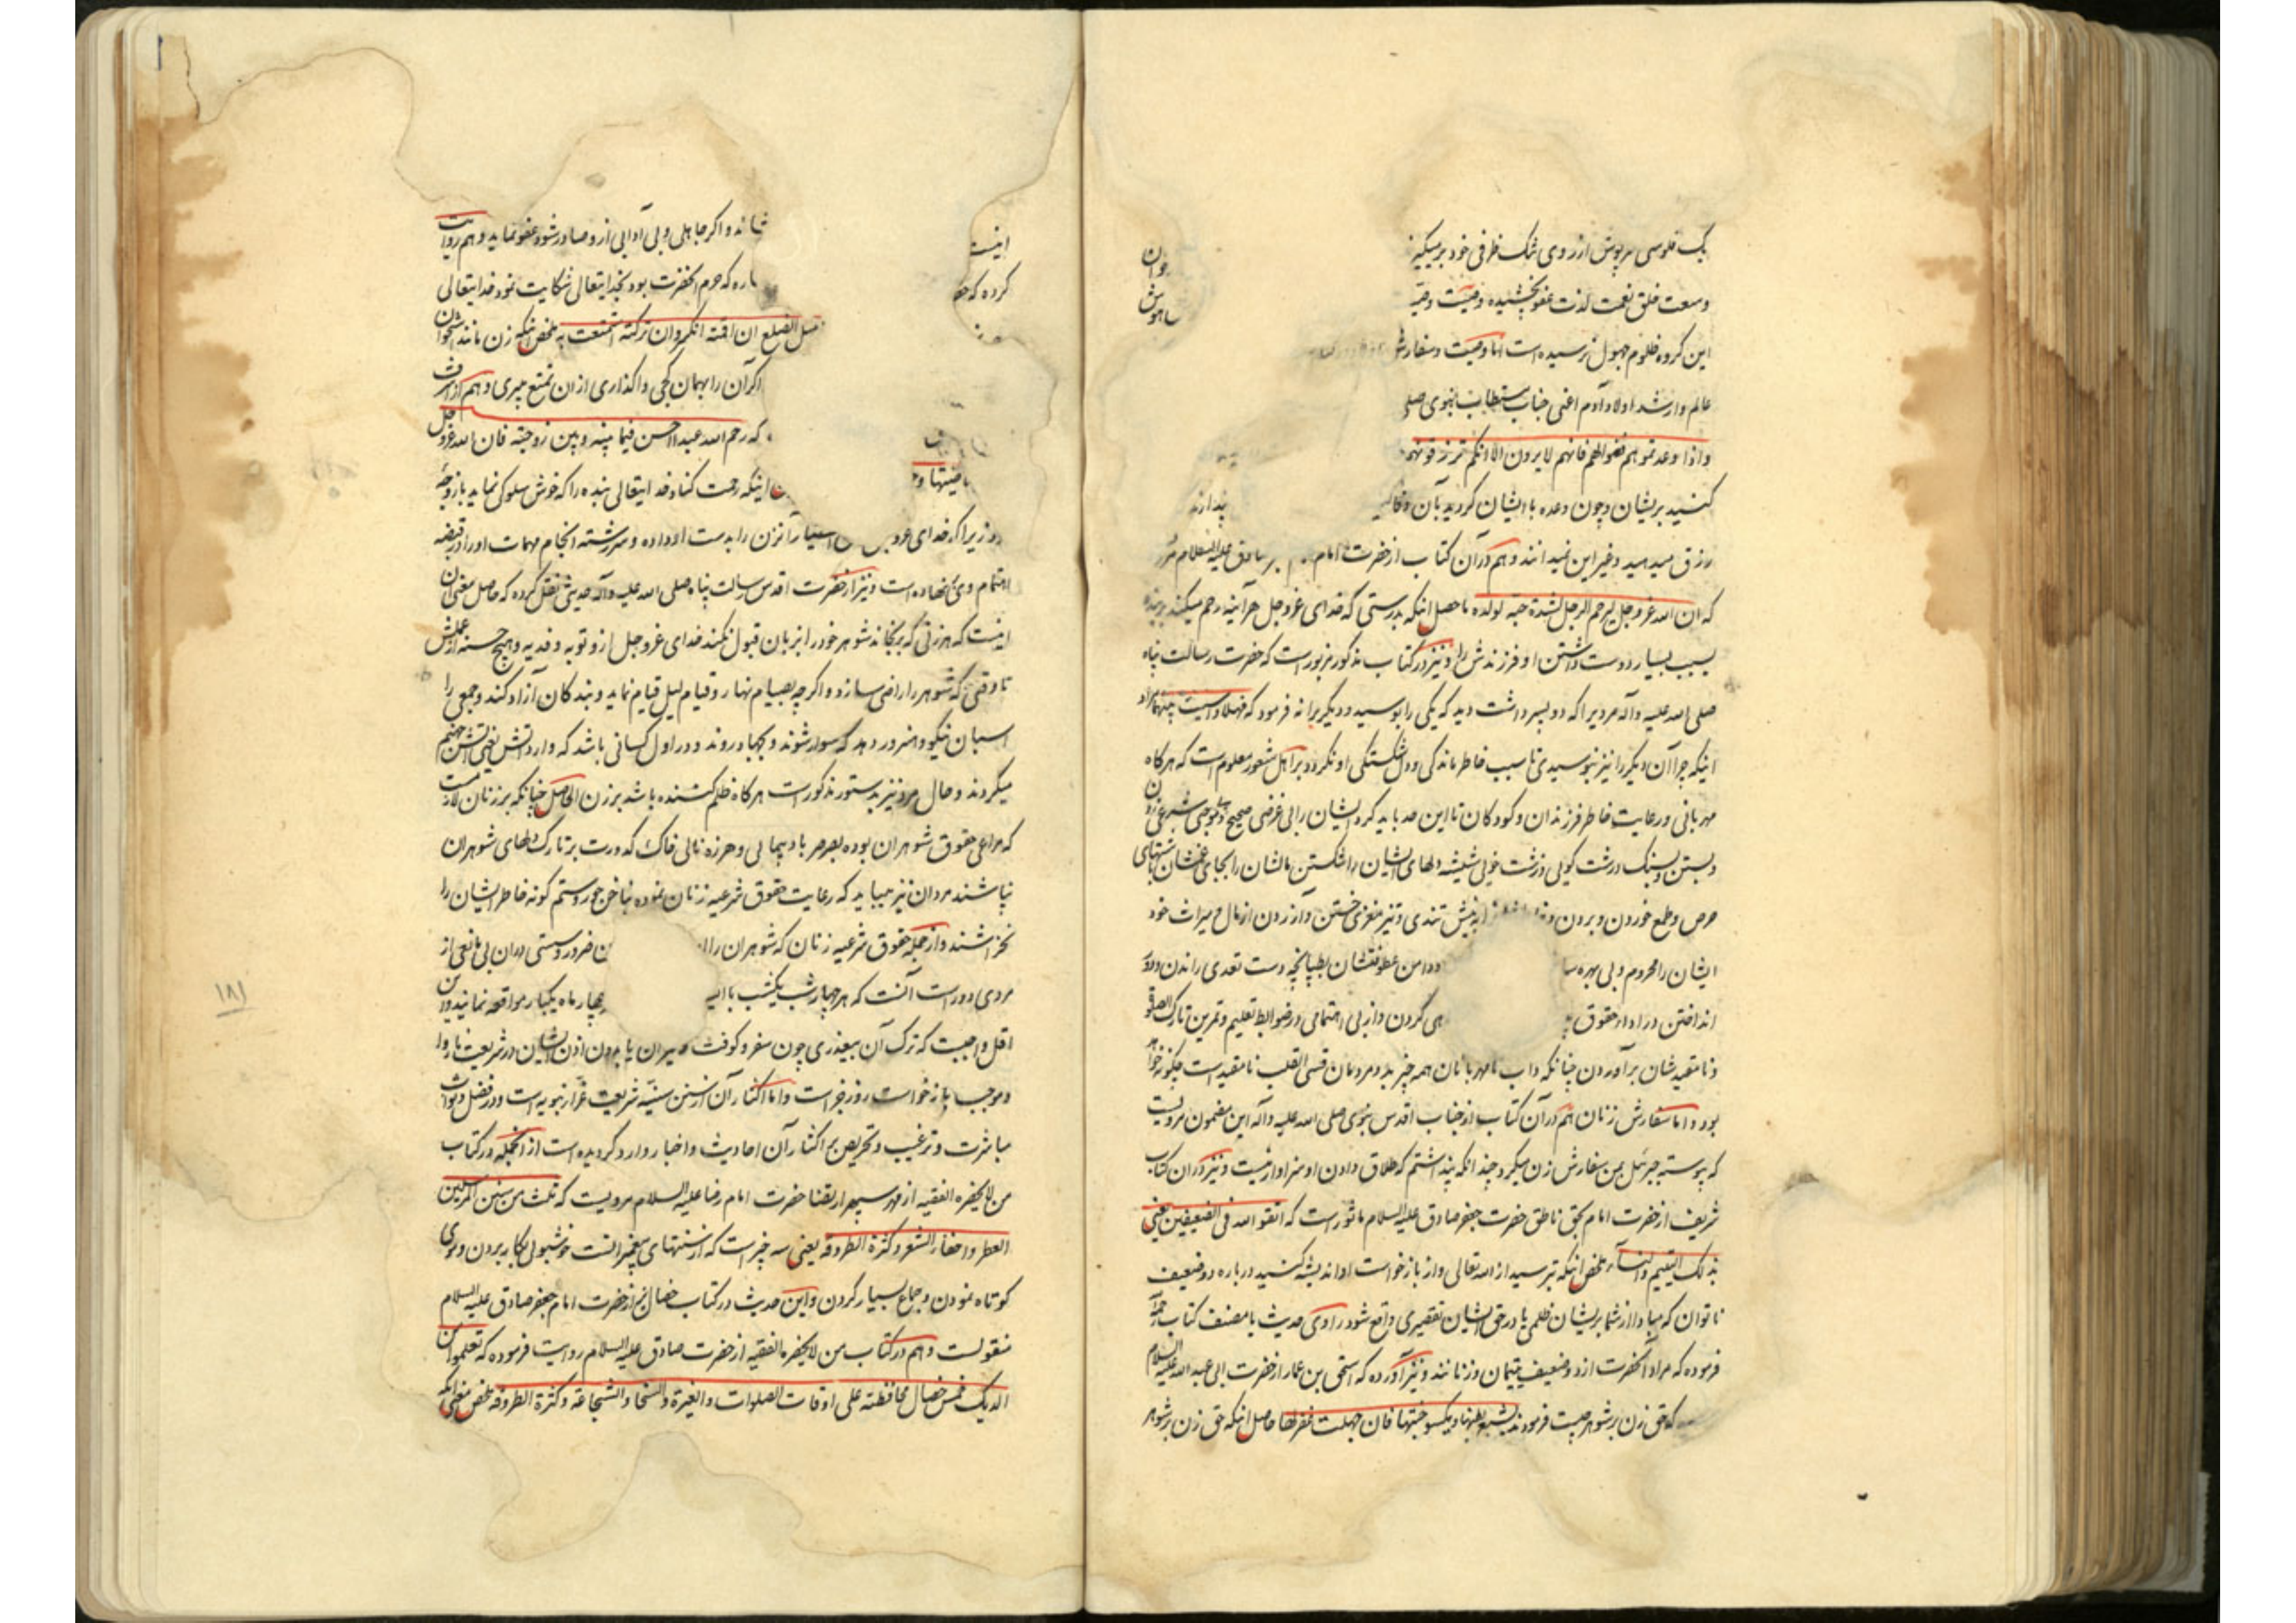 یک فلوسی سرپوش از روی تنک ظرفی خود برمیگیر
جوان
وسعت خلق نعمت لذت عفو بخشیده وصیت وصیّـ
این کروه مظلوم جهول نرسیده است اما وصیت وسفارش
عالم وارشد اولاد آدم اعنی جناب مستطاب نبوی صلی
واذا وعدتموهم ففوا لهم فانهم لا یرون الا انکم ترزقونهم
کنید بریشان وچون وعده با ایشان کردید بآن وفا
پندارند
رزق میدهید وغیر این نمیدانند وهم در آن کتاب از حضرت امام صادق علیه السلام
که ان الله عز وجل لیرحم الرجل لشدة حبه لولده ماحصل اینکه بدرستی که خدای عز وجل هرآینه رحم میکند بر بنده
بسبب بسیار دوست داشتن او فرزندش را ونیز در کتاب مذکور مزبور است که حضرت رسالت پناه
صلی الله علیه وآله مردیرا که دو پسر داشت دید که یکی را بوسید ودیگریرا نه فرمود که فهلا واسیت بینهما مراد
اینکه چرا آن دیگر را نیز نبوسیدی تا سبب خاطر ماندکی ودل شکستکی او نکردد بر اهل شعور معلوم است که هرکاه
مهربانی ورعایت خاطر فرزندان وکودکان تا این حد باید کرد ایشان را بی غرضی صحیح وموجبی شرعی زدن
وبستن وبسنک درشت کوئی وزشت خوئی شیشه دلهای ایشان را شکستن مالشان را بجای غمشان باشتهای
حرص وطمع خوردن وبردن و به نیش تندی وتیز مغزی خستن وآزردن از مال ومیراث خود
ایشان را محروم وبی بهره سا ودامن عطوفتشان بطپانچه دست تعدی راندن ودور
انداختن در ادای حقوق هی کردن واز بی اهتمامی در ضوابط تعلیم وتمرین تارک الصلوة
ونامقیدشان برآوردن چنانکه داب نامهربانان همه چیز بد ومردمان قسی القلب نامقید است چکونه خواهد
بود واما سفارش زنان هم در آن کتاب از جناب اقدس نبوی صلی الله علیه وآله این مضمون مرویست
که پیوسته جبرئیل بمن سفارش زن میکرد چندانکه پنداشتم که طلاق دادن او سزاوار نیست ونیز در آن کتاب
شریف از حضرت امام بحق ناطق حضرت جعفر صادق علیه السلام ماثور است که اتقوا الله فی الضعیفین یعنی
بذلک الیتیم والنساء ملخص اینکه بترسید از الله تعالی واز بازخواست او اندیشه کنید درباره دو ضعیف
ناتوان که مبادا از شما بریشان ظلمی یا در حق ایشان تقصیری واقع شود راوی حدیث یا مصنف کتاب
فرموده که مراد آنحضرت از دو ضعیف یتیمان وزنانند ونیز آورده که اسحق بن عمار از حضرت ابی عبد الله علیه السلام
که حق زن بر شوهر چیست فرمودند یشبع بطنها ویکسو جثتها فان جهلت غفر لها حاصل اینکه حق زن بر شوهر
اینست
شاند واکر جاهلی وبی آدابی ازو صادر شود عفو نماید وهم روایت
کرده که
ساره که حرم آنحضرت بود بخدایتعالی شکایت نمود خدایتعالی
مثل الضلع ان اقمته انکسر وان ترکته استمتعت به ملخص اینکه زن مانند استخوان
اکر آن را بهمان کجی واکذاری از آن تمتع میبری وهم از
که رحم الله عبدا احسن فیما بینه وبین زوجته فان الله عز وجل
اینکه رحمت کناد خدایتعالی بنده را که خوش سلوکی نماید با زوجه
زیرا که خدای عز وجل اختیار آنزن را بدست او داده وسررشته انجام مهمات او را در قبضه
اهتمام وی نهاده است ونیز از حضرت اقدس رسالت پناه صلی الله علیه وآله حدیثی نقل کرده که حاصل معنی آن
اینست که هر زنی که برنجاند شوهر خود را بزبان قبول نکند خدای عز وجل ازو توبه وفدیه وهیچ حسنه از عملش
تا وقتی که شوهر را راضی سازد واکرچه بصیام نهار وقیام لیل قیام نماید وبندکان آزاد کند وجمعی را
اسبان نیکو وهنرور دهد که سوار شوند وبجهاد روند ودر اول کسانی باشد که وارد آتش یعنی آتش جهنم
میکردند وحال مرد نیز بدستور مذکور است هرکاه ظلم کننده باشد بر زن الحاصل چنانکه بر زنان لازمست
که مراعی حقوق شوهران بوده بصرصر بادپیمایی وهرزه نالی خاک کدورت بر تارک دلهای شوهران
نپاشند مردان نیز میباید که رعایت حقوق شرعیه زنان نموده بناخن جور وستم کونه خاطر ایشان را
نخراشند واز جمله حقوق شرعیه زنان که شوهران را ضرور وسستی در آن بی مانعی از
مردی دور است آنست که هر چهار شب یکشب با چهار ماه یکبار مواقعه نمایند واین
اقل واجبست که ترک آن بیعذری چون سفر وکوفت پیران یا بدون اذن ایشان در شریعت ناروا
وموجب بازخواست روز جزاست واما اکثار آن از سنن سنیّه شریعت غرّاء نبویه است ودر فضل وثواب
مباشرت وترغیب وتحریص بر اکثار آن احادیث واخبار وارد کردیده است از آنجمله در کتاب
من لا یحضره الفقیه از مهر سپهر ارتضا حضرت امام رضا علیه السلام مرویست که ثلث من سنن المرسلین
العطر واحفاء الشعر وکثرة الطروقه یعنی سه چیز است که از سنتهای پیغمبرانست خوشبوئی بکار بردن وموی
کوتاه نمودن وجماع بسیار کردن واین حدیث در کتاب خصال نیز از حضرت امام جعفر صادق علیه السلام
منقولست وهم در کتاب من لا یحضره الفقیه از حضرت صادق علیه السلام روایت فرموده که تعلموا من
الدیک خمس خصال محافظته علی اوقات الصلوات والغیرة والسخاء والشجاعة وکثرة الطروقه ملخص معنی آنکه
۱۸۱